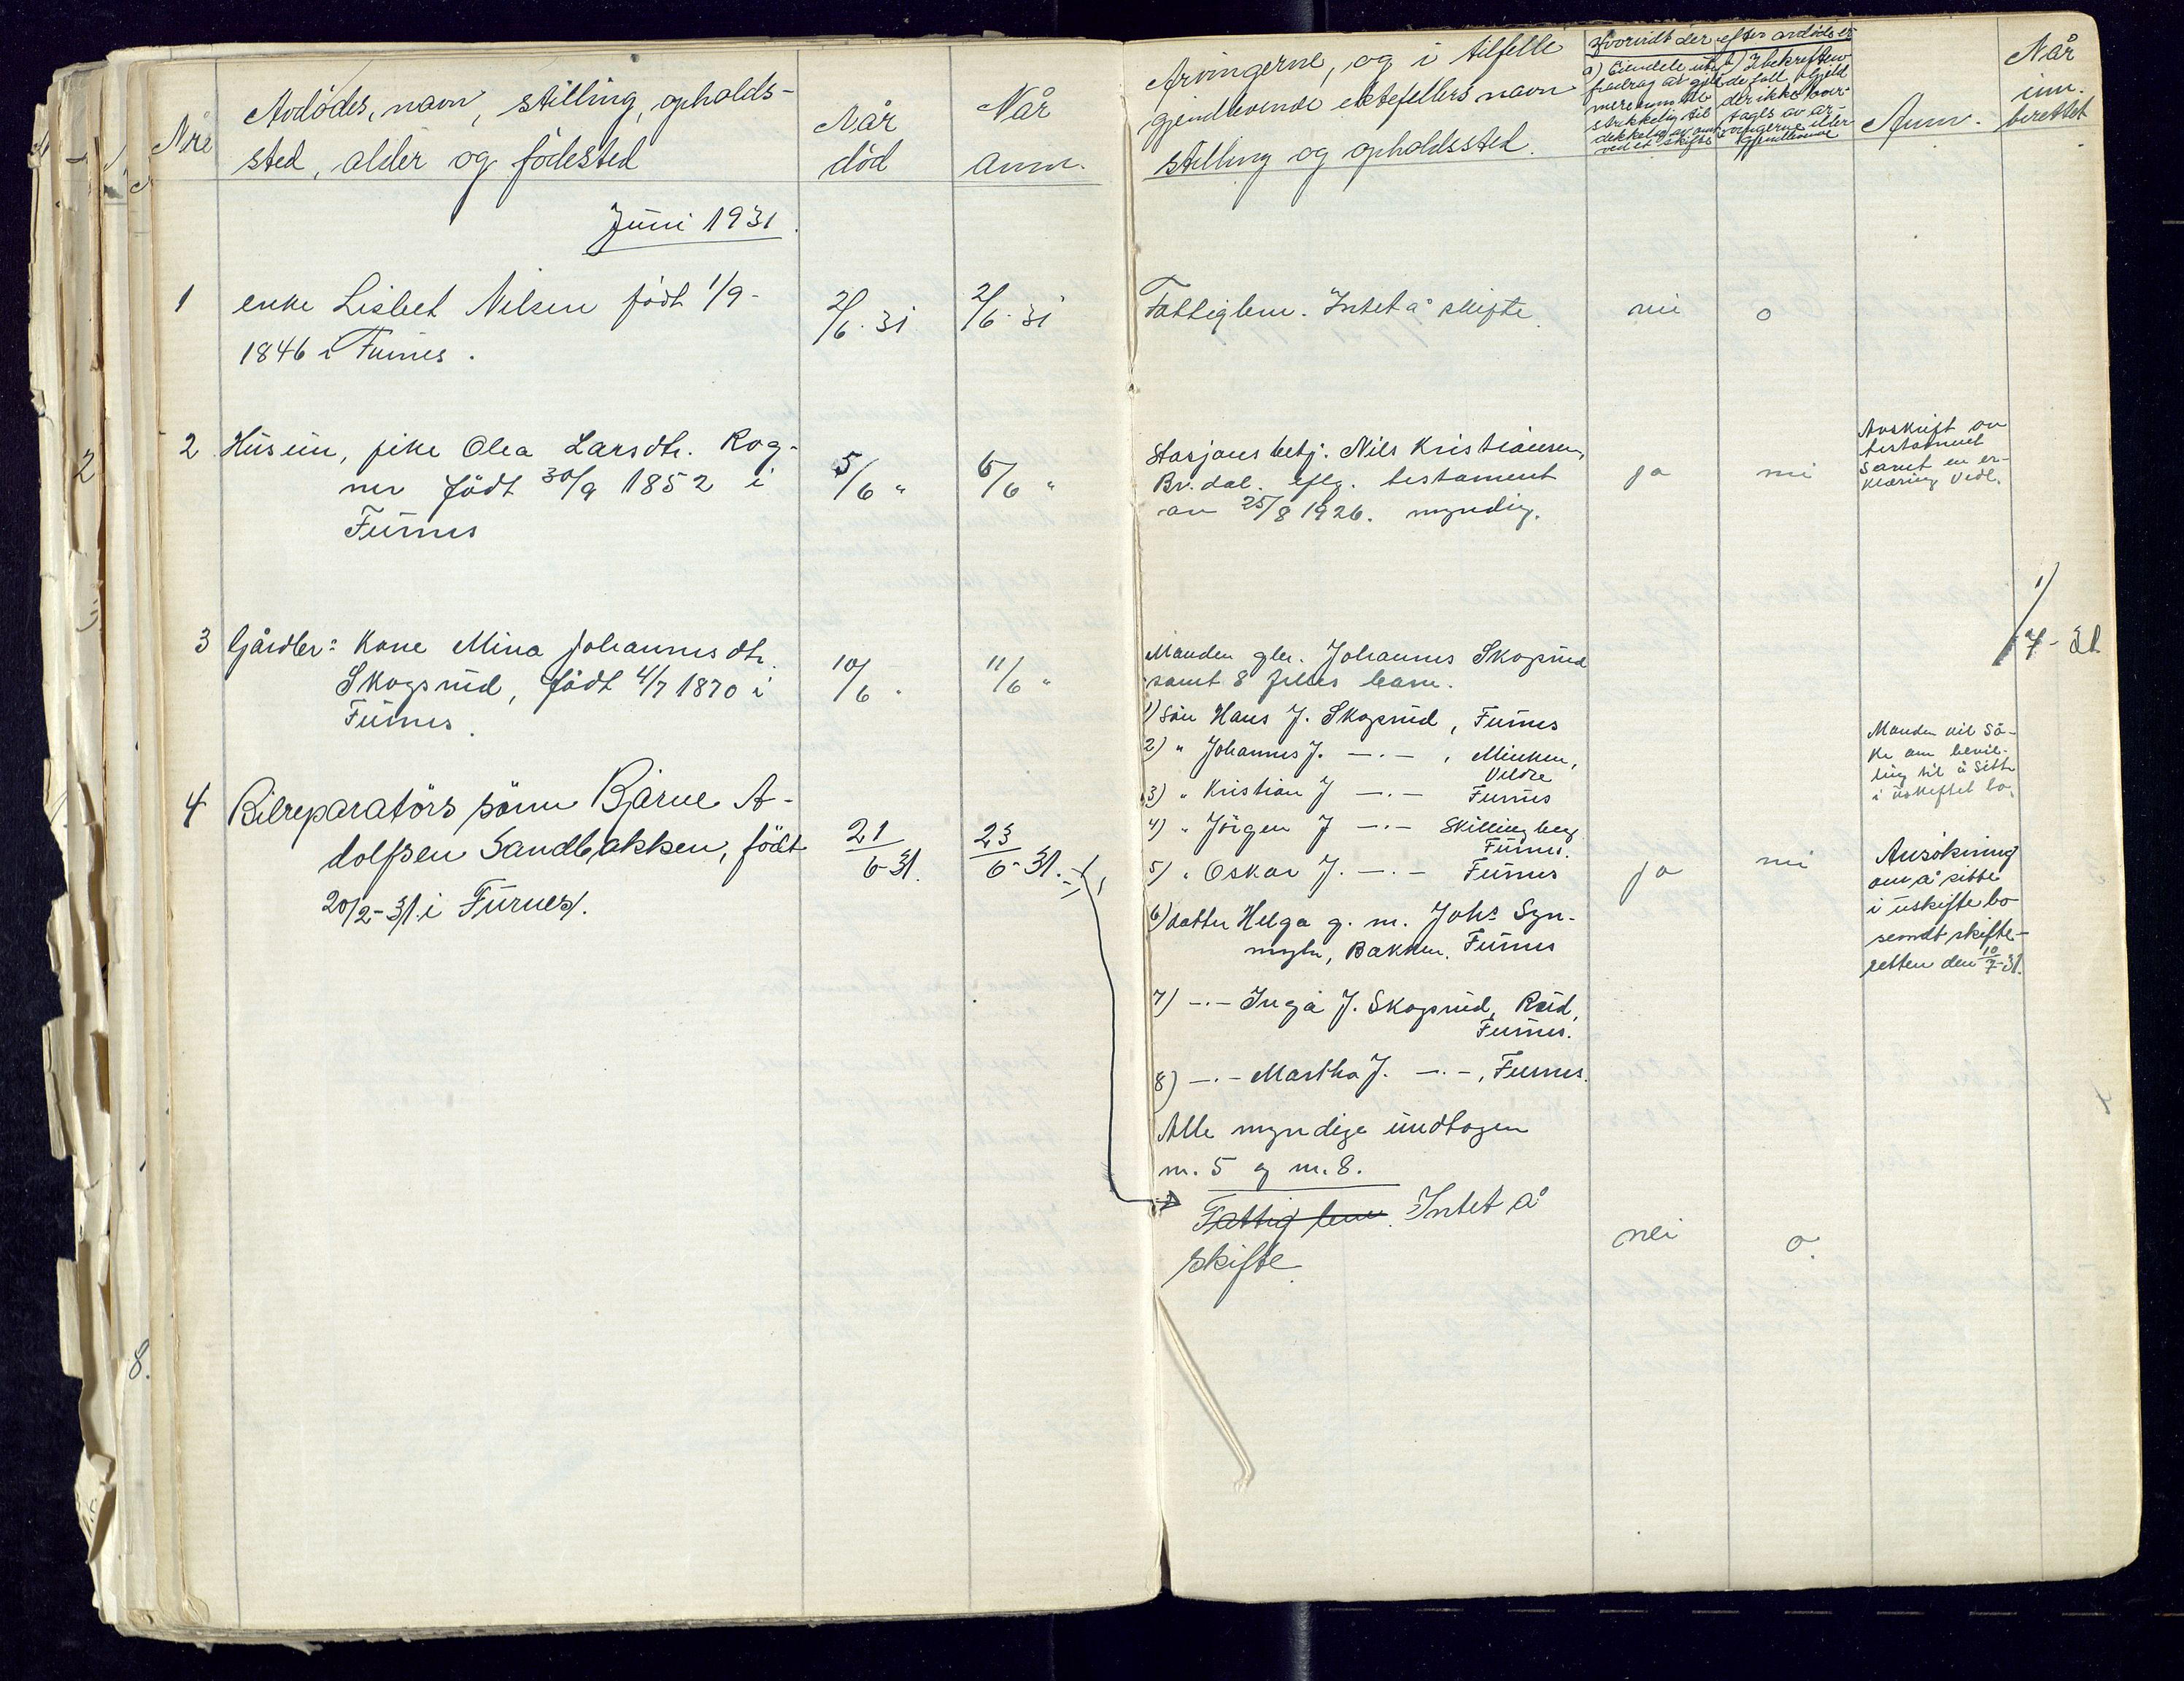 Nre
Avdödes, navn, stilling, opholds-
sted, alder og födested
Når
död
Når
anm.
Arvingerne, og i tilfelle
gjenlevende ektefellers navn
stilling og opholdssted.
Hvorvidt der efter avdöde er
a) Eiendele
b)
Anm.
Når
inn-
berettet
Juni 1931.
1
enke Lisbet Nilsen född 1/9-
1846 i Furnes.
2/6. 31
2/6. 31
Fattiglem. Intet å skifte
nei
0
2
Husein, pike Olea Larsdtr. Rog-
ner född 30/9 1852 i
Furnes
5/6 "
6/6 "
Stasjonsbetj. Nils Kristiansen,
Br.dal. iflg. testament
av 25/8 1926. myndig.
ja
nei
Avskrift av
testament
samt en er-
klæring vedl.
1/7-31
3
Gårdbr: Kone Mina Johannesdtr.
Skogsrud, född 4/7 1870 i
Furnes.
10/6 "
11/6 "
Manden gbr. Johannes Skogsrud
samt 8 felles barn.
1) Sön Hans J. Skogsrud, Furnes
2) " Johannes J. —.— ,
Veldre
3) " Kristian J —.— Furnes
4) " Jörgen J —.— Skillingberg
Furnes.
5) " Oskar J. —.— Furnes
6) datter Helga g. m. Johs Syn-
, Bakken, Furnes
7) —.— Inga J. Skogsrud, Rud,
Furnes.
8) —.— Martha J. —.—, Furnes.
Alle myndige undtagen
nr. 5 og nr. 8.
ja
nei
Manden vil sö-
ke om bevil-
ling til å sitte
i uskiftet bo.
Ansökning
om å sitte
i uskifte bo
sendt skifte-
retten den 10/7-31.
4
Bilreparatörs sönn Bjarne A-
dolfsen Sandbakken, född
20/2-31 i Furnes.
21/6-31.
23/6-31.
Fattiglem. Intet å
skifte.
nei
0.
2
8.